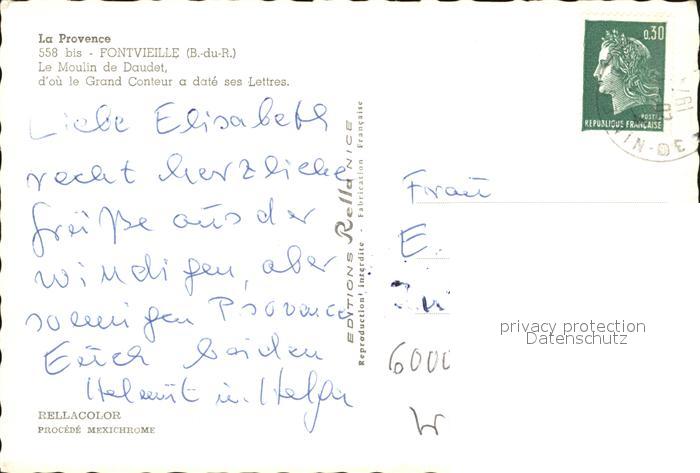 La Provence
558 bis - FONTVIEILLE (B.-du-R.)
Le Moulin de Daudet,
d'où le Grand Conteur a daté ses Lettres.
Liebe Elisabeth
recht herzliche
Grüße aus der
windigen, aber
sonnigen Provence
Euch beiden
Helmut u. Helga
RELLACOLOR
PROCÉDÉ MEXICHROME
EDITIONS Rella NICE
Reproduction interdite - Fabrication Française
0,30
POSTES
REPUBLIQUE FRANÇAISE
1971
IN-DE
Frau
E.
6000
W
privacy protection
Datenschutz